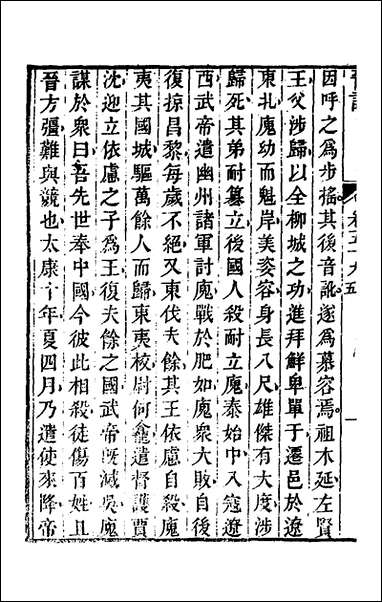 因呼之爲步搖其後音訛遂爲慕容焉祖木延左賢
王父涉歸以全柳城之功進拜鮮卑單于遷邑於遼
東北廆幼而魁岸美姿容身長八尺雄傑有大度涉
歸死其弟耐篡立後國人殺耐立廆泰始中入寇遼
西武帝遣幽州諸軍討廆戰於肥如廆衆大敗自後
復掠昌黎每歲不絕又東伐夫餘其王依慮自殺廆
夷其國城驅萬餘人而歸東夷校尉何龕遣督護賈
沈迎立依慮之子爲王復夫餘之國武帝旣滅吳廆
謀於衆曰吾先世奉中國今彼此相殺徒傷百姓且
晉方彊難與競也太康十年夏四月乃遣使來降帝